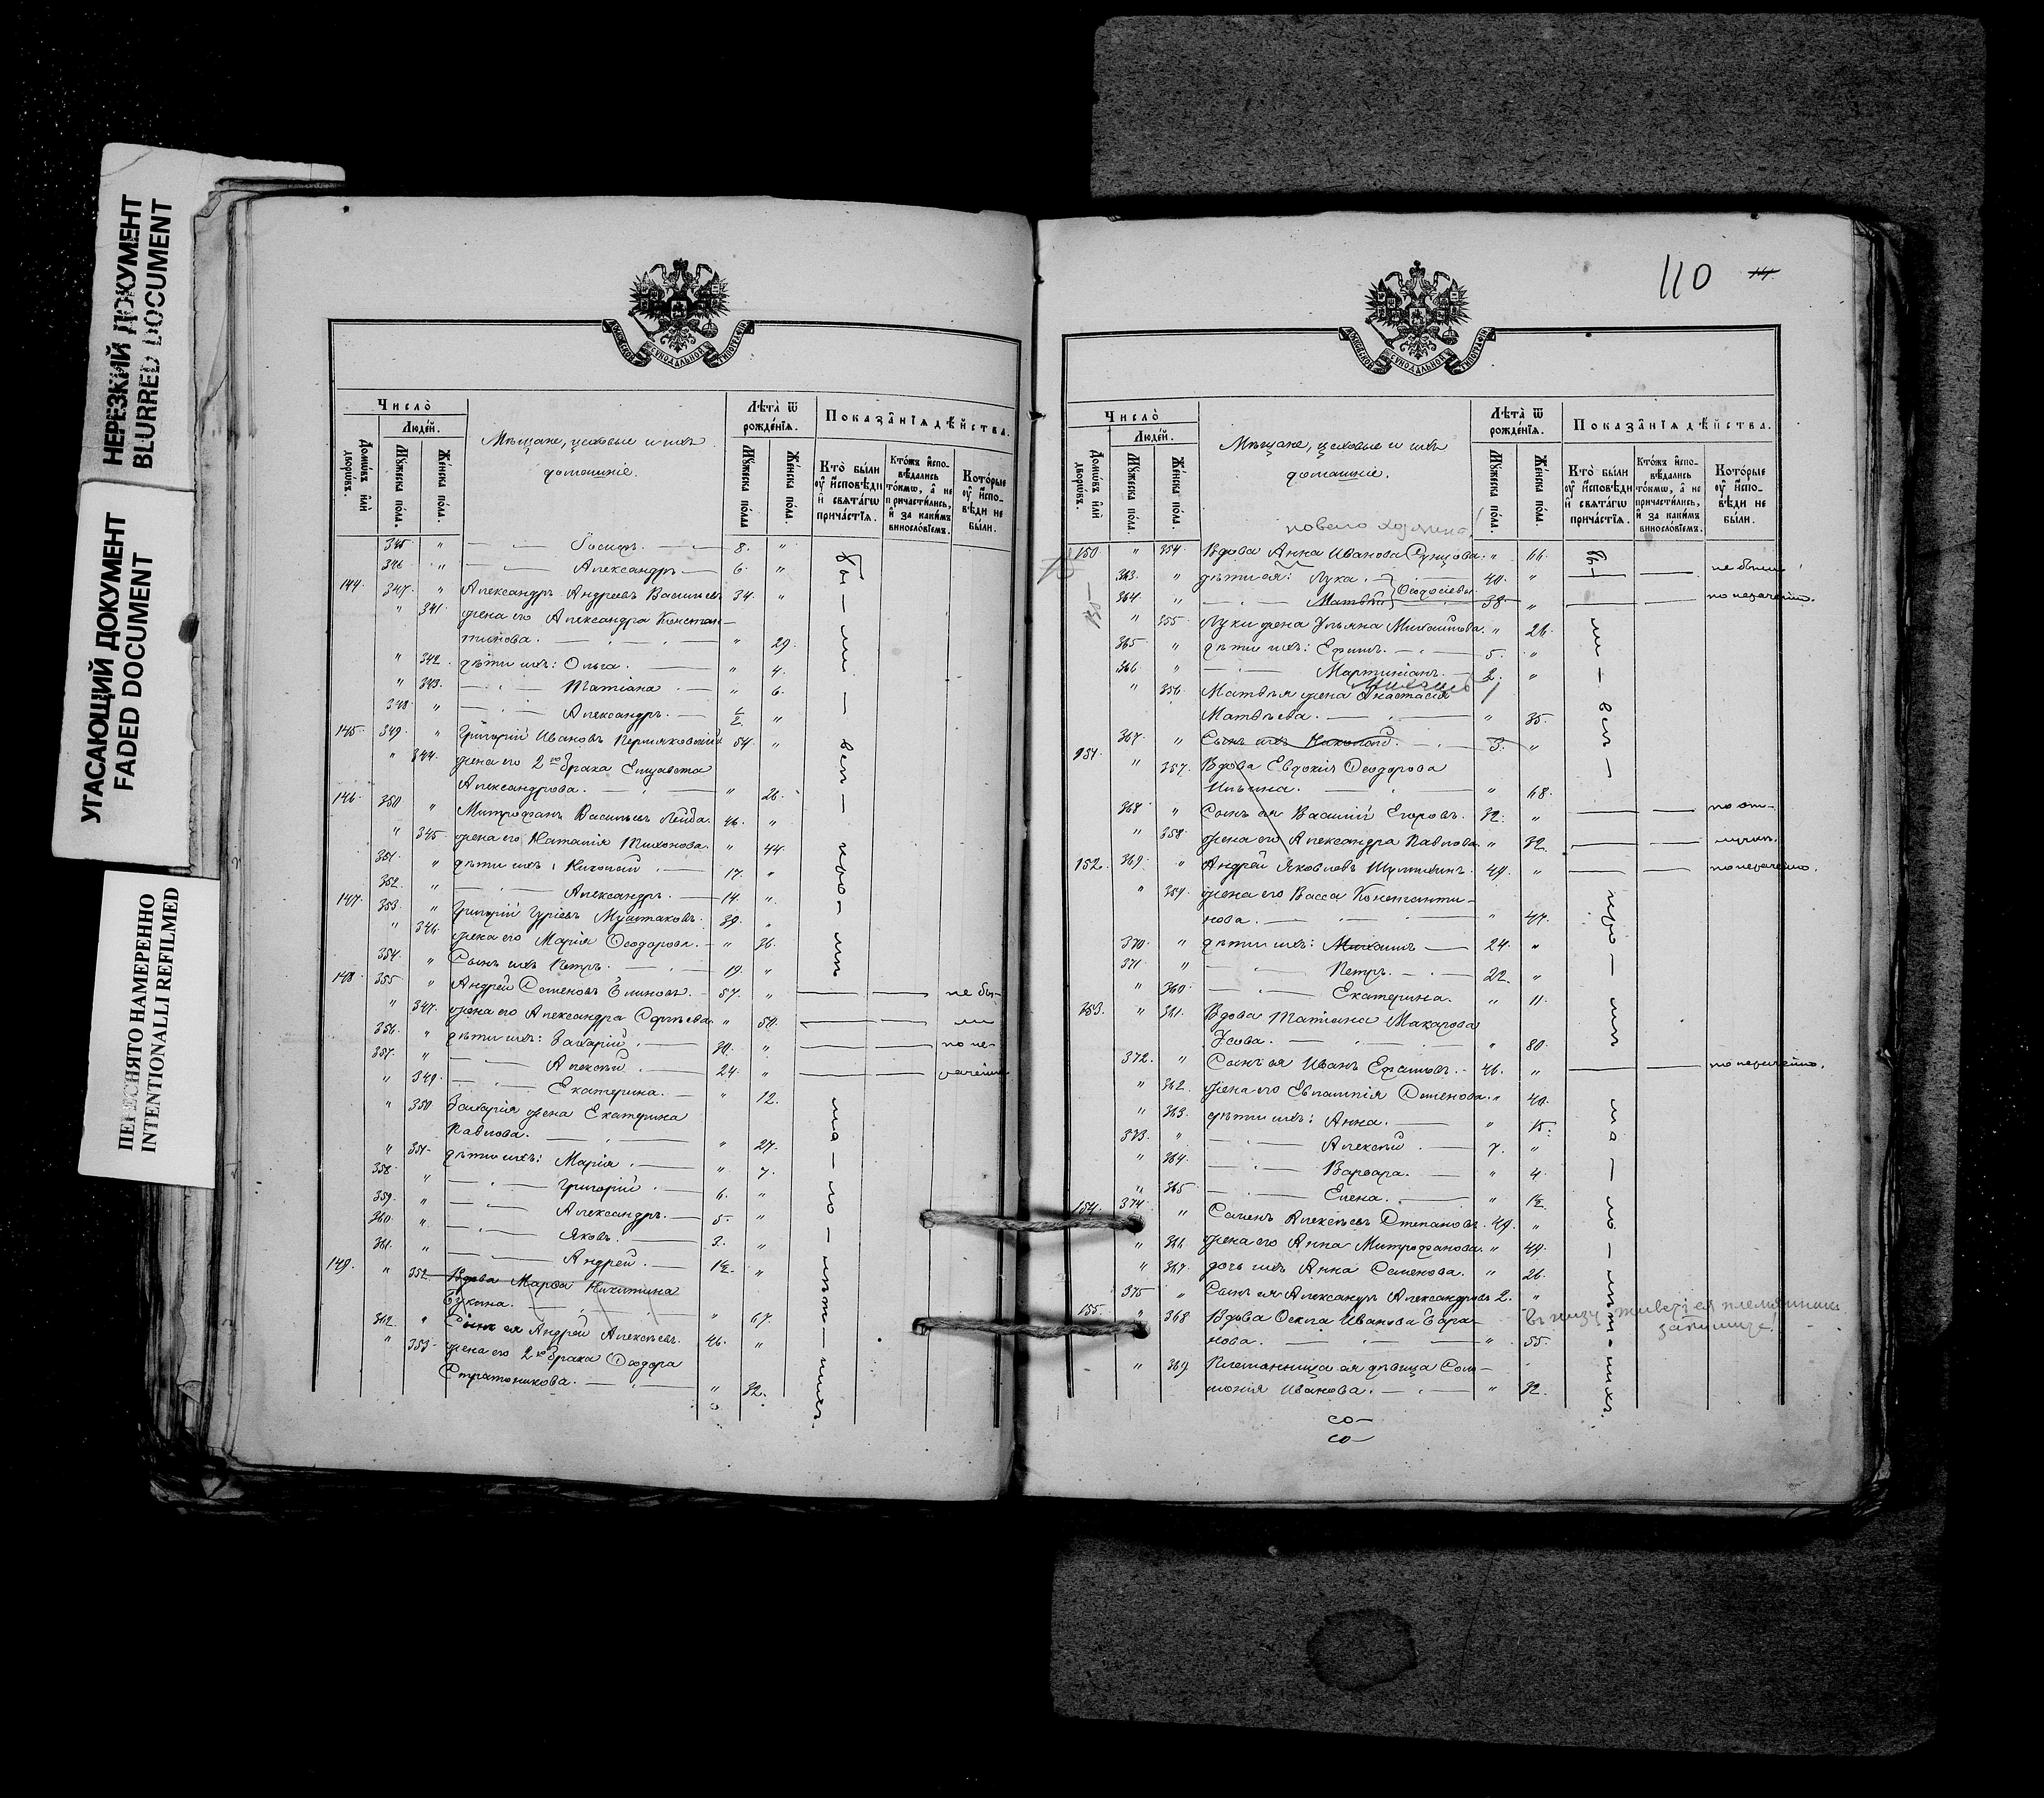 НЕРЕЗКИЙ ДОКУМЕНТ
BLURRED DOCUMENT
УГАСАЮЩИЙ ДОКУМЕНТ
FADED DOCUMENT
ПЕРЕСНЯТО НАМЕРЕННО
INTENTIONALLI REFILMED
Число̀
Людей.
Домѡвъ или дворѡвъ.
Мꙋжеска пола.
Женска пола.
Мѣщане, цеховые и ихъ
домашніе.
Лѣта ѿ рожденїѧ.
Мꙋжеска пола
Женска пола.
Показанїѧ дѣйства.
Кто были ѹ исповѣди и свѧтагѡ причастїѧ.
Ктожъ исповѣдались токмѡ, а не причастились, и за какимъ винословїемъ.
Которые ѹ исповѣди не были.
345 " Іосифъ. 8. "
346 " Александръ 6. "
144 347 " Александръ Андреевъ Васильевъ 34. "
" 341 жена его Александра Констан-
тинова. " 29.
" 342 дѣти ихъ: Ольга. " 4.
" 343. Татіана " 6.
348 " Александръ. 1/2 "
145 349. " Григорій Ивановъ 54. "
" 344. жена его 2го брака Елисавета
Александрова. " 26.
146. 350 " Митрофанъ Васильевъ 46. "
" 345 жена его Наталія Тихонова. " 44.
351. " дѣти ихъ: Николай 17. "
352. " Александръ. 14. "
147 353. " Григорій Гуріевъ 39. "
" 346. жена его Марія Ѳеодорова. " 36.
354. " Сынъ ихъ Петръ. 19. "
148. 355 " Андрей Семеновъ 57. " не бы-
" 347. жена его Александра Сергѣева. " 50. ли
356. " дѣти ихъ: Захарій 30. " по не-
357. " Алексѣй 24. " раченію
" 349. Екатерина. " 12.
" 350 Захарія жена Екатерина
Павлова. " 27.
" 351 дѣти ихъ: Марія " 7.
358. " Григорій 6. "
359. " Александръ. 5. "
360. " Яковъ. 3. "
361. " Андрей. 1½. "
149. " 352 Вдова Марѳа Никитина
Букина. " 67.
362. " Сынъ ея Андрей Алексѣевъ. 46. "
" 353 жена его 2го брака Ѳеодора
Стратоникова. " 32.
110
Число̀
Людей.
Домѡвъ или дворѡвъ.
Мꙋжеска пола.
Женска пола.
Мѣщане, цеховые и ихъ
домашніе.
Лѣта ѿ рожденїѧ.
Мꙋжеска пола
Женска пола.
Показанїѧ дѣйства.
Кто были ѹ исповѣди и свѧтагѡ причастїѧ.
Ктожъ исповѣдались токмѡ, а не причастились, и за какимъ винословїемъ.
Которые ѹ исповѣди не были.
150 " 354. Вдова Анна Иванова " 66. не были
363. " дѣти ея: Лука. 40. "
364. " Матвѣй Ѳеодосіевы 38. " по нераченію.
" 355. Луки жена Ульяна Михайлова. " 26.
365 " дѣти ихъ: Ефимъ. 5. "
366 " Мартиніанъ. 2. "
" 356. Матвѣя жена Анастасія
Матвѣева. " 35.
367. " Сынъ ихъ Николай. 3. "
151. " 357. Вдова Евдокія Ѳеодорова
Ильина. " 68.
368 " Сынъ ея Василій Егоровъ. 32. " по от-
" 358. жена его Александра Павлова. " 32. лучкѣ.
152. 369. " Андрей Яковлевъ 49. " по нераченію.
" 359. жена его Васса Константи-
нова. " 47.
370. " дѣти ихъ: Михаилъ 24. "
371 " Петръ. 22. "
" 360. Екатерина. " 11.
153. " 361. Вдова Татіана Макарова
Усова. " 80.
372. " Сынъ ея Иванъ Ефимовъ. 46. " по нераченію.
" 362. жена его Евлампія Семенова. " 40.
" 363. дѣти ихъ: Анна. " 15.
373. " Алексѣй 7. "
" 364. Варвара. " 4.
" 365 Елена. " 1½.
154. 374. " Семенъ Алексѣевъ Степановъ. 49. "
" 366 жена его Анна Митрофанова. " 49.
" 367. дочь ихъ Анна Семенова. " 26.
375 " Сынъ ея Александръ Александровъ 2. "
155. " 368 Вдова Ѳекла Иванова Бара-
нова. " 55.
" 369 Племянница ея дѣвица Соло-
монія Иванова. " 32.